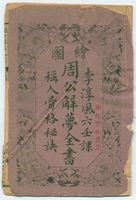 繪圖
李淳風六壬課
周公解夢全書
稱人骨格秘訣